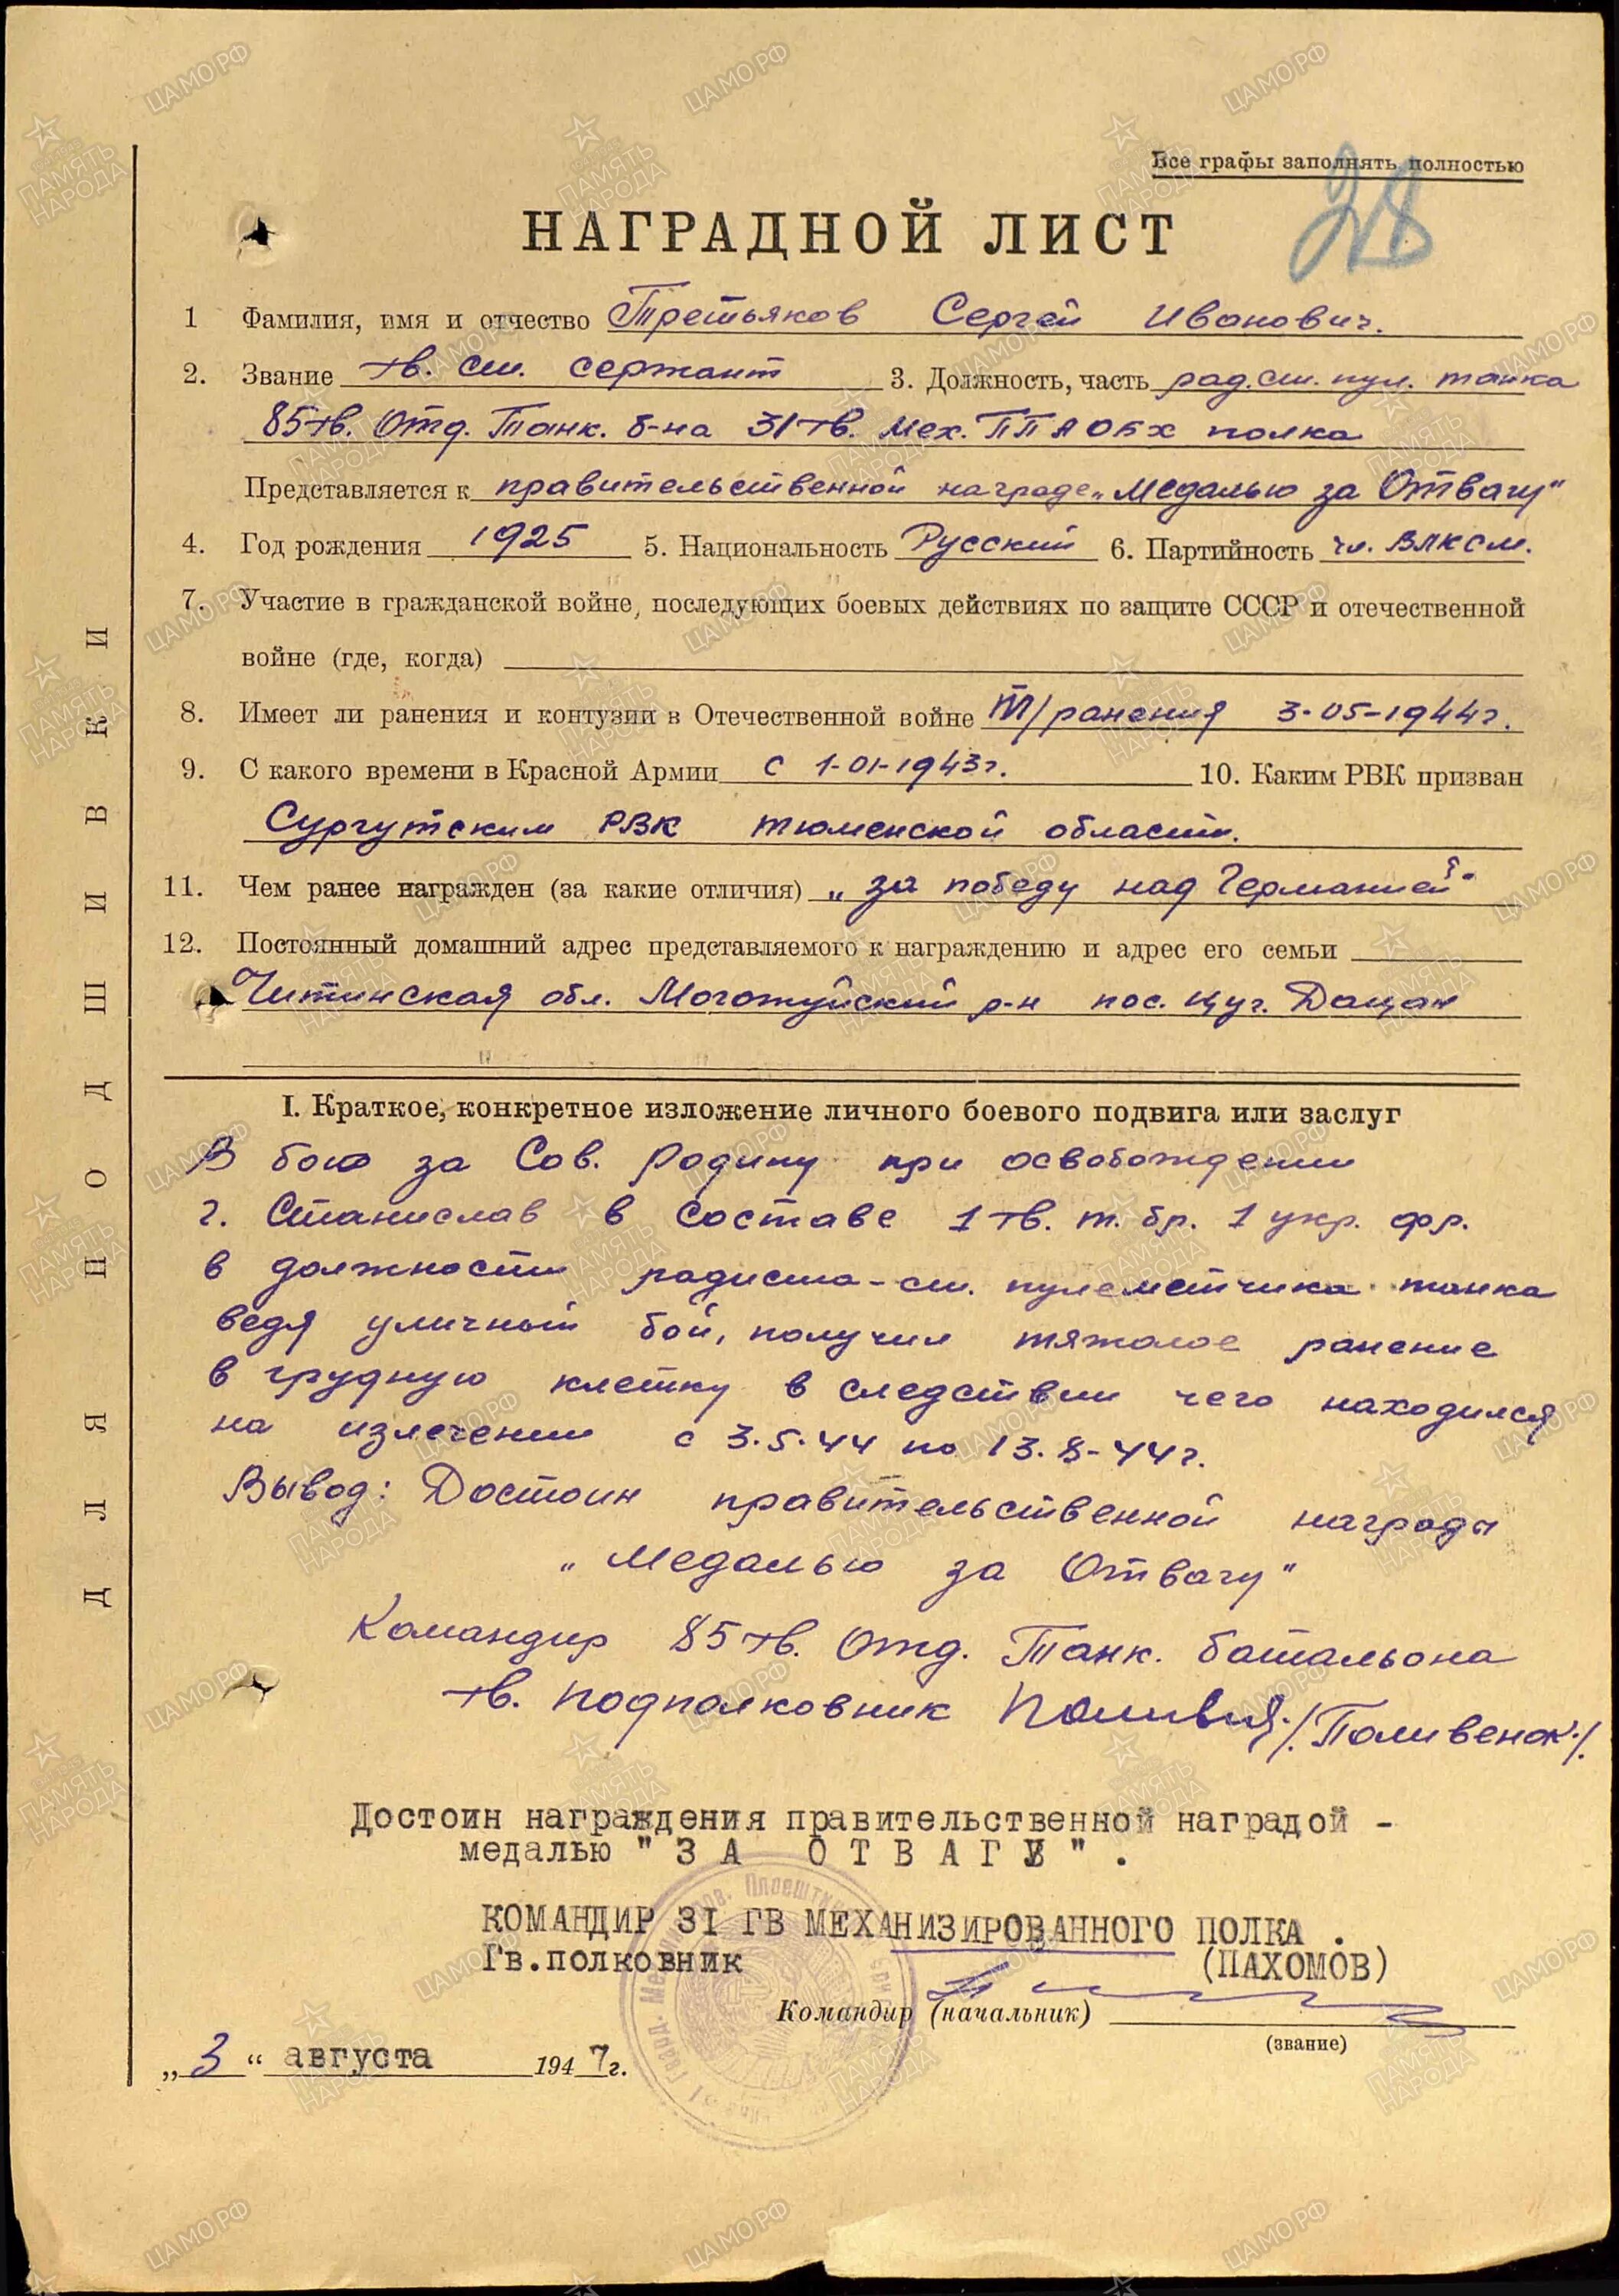 Все графы заполнять полностью
28
НАГРАДНОЙ ЛИСТ
1 Фамилия, имя и отчество Третьяков Сергей Иванович.
2. Звание гв. ст. сержант 3. Должность, часть рад. ст. пул. танка
85 гв. Отд. Танк. б-на 31 гв. Мех. ППАОБХ полка
Представляется к правительственной награде „Медалью за Отвагу"
4. Год рождения 1925 5. Национальность Русский 6. Партийность чл. ВЛКСМ.
7. Участие в гражданской войне, последующих боевых действиях по защите СССР и отечественной
войне (где, когда)
8. Имеет ли ранения и контузии в Отечественной войне т/ранения 3-05-1944г.
9. С какого времени в Красной Армии с 1-01-1943г. 10. Каким РВК призван
Сургутским РВК Тюменской области.
11. Чем ранее награжден (за какие отличия) „за победу над Германией"
12. Постоянный домашний адрес представляемого к награждению и адрес его семьи
Читинская обл. Моготуйский р-н пос. Цуг. Дацан
I. Краткое, конкретное изложение личного боевого подвига или заслуг
В бою за Сов. Родину при освобождении
г. Станислав в составе 1 гв. т. бр. 1 укр. фр.
в должности радиста-ст. пулеметчика танка
ведя уличный бой, получил тяжолое ранение
в грудную клетку в следствии чего находился
на излечении с 3.5.44 по 13.8-44г.
Вывод: Достоин правительственной награды
„Медалью за Отвагу"
Командир 85 гв. Отд. Танк. батальона
гв. подполковник /Поливенок/.
Достоин награждения правительственной наградой -
медалью "ЗА ОТВАГУ".
КОМАНДИР 31 ГВ МЕХАНИЗИРОВАННОГО ПОЛКА.
Гв.полковник (ПАХОМОВ)
Командир (начальник)
(звание)
„3" августа 1947г.
ДЛЯ ПОДШИВКИ
ЦАМО.РФ
ПАМЯТЬ НАРОДА